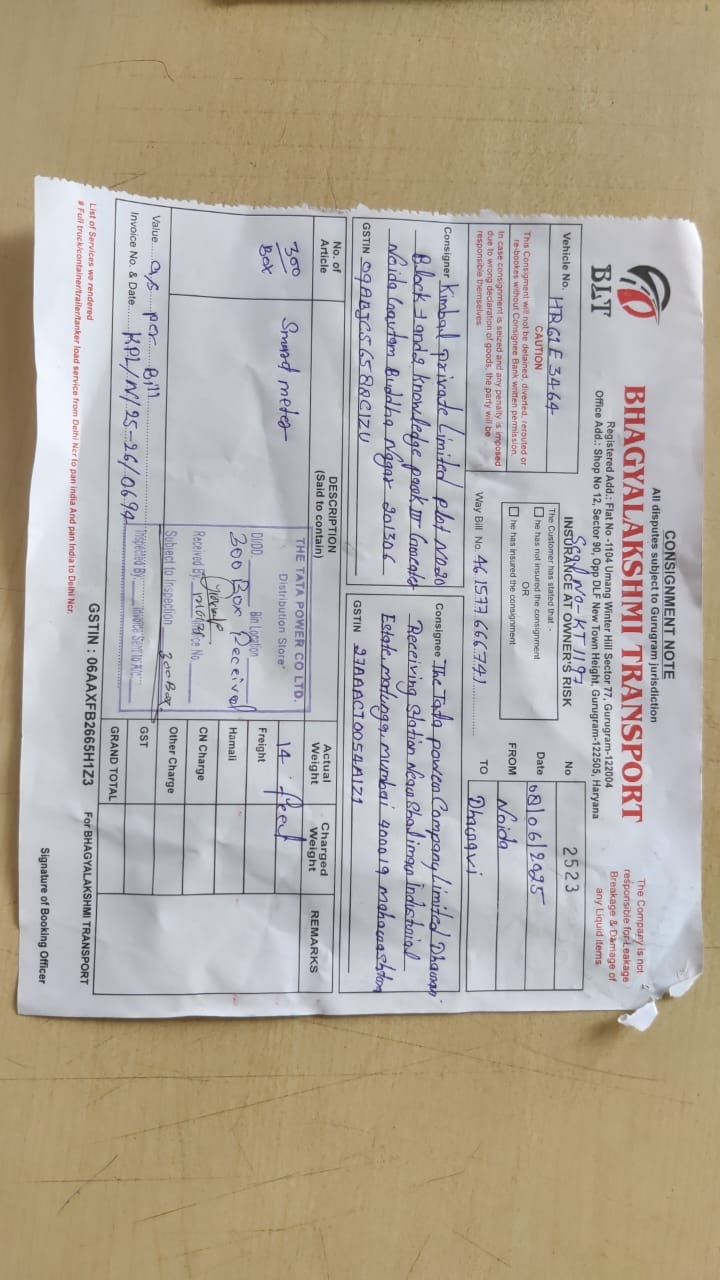 CONSIGNMENT NOTE
All disputes subject to Gurugram jurisdiction
BLT
BHAGYALAKSHMI TRANSPORT
Registered Add.: Flat No -1104 Umang Winter Hill Sector 77, Gurugram-122004
Office Add.: Shop No 12, Sector 90, Opp DLF New Town Height, Gurugram-122505, Haryana
The Company is not
responsible for Leakage
Breakage & Damage of
any Liquid items.
Seal No-KT 1197
Vehicle No. HR61E3464
INSURANCE AT OWNER'S RISK
No 2523
CAUTION
This Consigment will not be detained, diverted, rerouted or
re-bookes without Consignee Bank written permission.
In case consignment is seized and any penalty is imposed
due to wrong declaration of goods, the party will be
responsible themselves.
The Customer has stated that -
he has not insured the consignment
OR
he has insured the consignment
Way Bill No. 46 1577 666741
Date 08/06/2025
FROM Noida
TO Dharavi
Consigner Kimbal private Limited plot No20
Block 1 and 2 Knowledge park III Greater
Noida Gautam Buddha Nagar 201306
GSTIN 09AAJCS6589RC1ZU
Consignee The Tata power Company Limited Dharavi
Receiving Station Near Shalimar Industrial
Estate, Matunga, Mumbai 400019 Maharashtra
GSTIN 27AAACT0054A1Z1
No. of
Article
DESCRIPTION
(Said to contain)
Actual
Weight
Charged
Weight
REMARKS
300
Box
Smard meter
14 feet
THE TATA POWER CO LTD.
Distribution Store
DI/DO Bin Location
300 Box Received
Received By
Subject to Inspection 300 Box
Inspected By Invoice Sent to A/C
Freight
Hamali
CN Charge
Other Charge
GST
GRAND TOTAL
Value As per Bill
Invoice No. & Date KPL/N/25-26/0694
GSTIN : 06AAXFB2665H1Z3
For BHAGYALAKSHMI TRANSPORT
List of Services we rendered
# Full truck/container/trailer/tanker load service from Delhi Ncr to pan india And pan India to Delhi Ncr.
Signature of Booking Officer